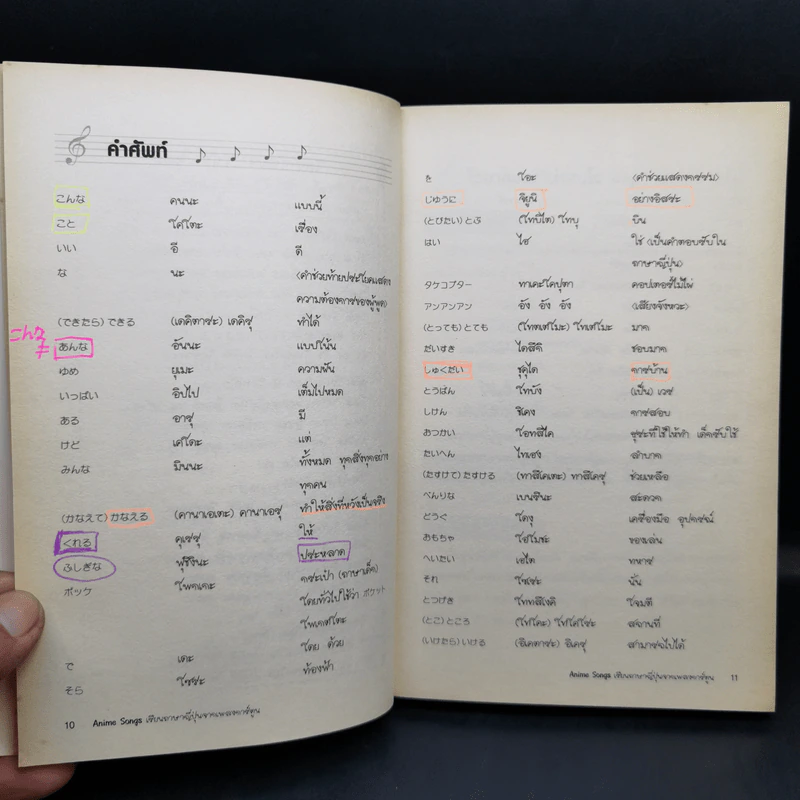 คำศัพท์
こんな คนนะ แบบนี้
こと โคโตะ เรื่อง
いい อี ดี
な นะ (คำช่วยท้ายประโยคแสดง
ความต้องการของผู้พูด)
(できたら) できる (เดคิตาระ) เดคิรุ ทำได้
こんな
≠
あんな อันนะ แบบโน้น
ゆめ ยุเมะ ความฝัน
いっぱい อิปไป เต็มไปหมด
ある อารุ มี
けど เคโดะ แต่
みんな มินนะ ทั้งหมด ทุกสิ่งทุกอย่าง
ทุกคน
(かなえて) かなえる (คานาเอเตะ) คานาเอรุ ทำให้สิ่งที่หวังเป็นจริง
くれる คุเรรุ ให้
ふしぎな ฟุชิงินะ ประหลาด
ポッケ โพคเคะ กระเป๋า (ภาษาเด็ก)
โดยทั่วไปใช้ว่า ポケット
โพเคตโตะ
で เดะ โดย ด้วย
そら โซระ ท้องฟ้า
10 Anime Songs เรียนภาษาญี่ปุ่นจากเพลงการ์ตูน
を โอะ (คำช่วยแสดงกรรม)
じゆうに จิยูนิ อย่างอิสระ
(とびたい) とぶ (โทบิไต) โทบุ บิน
はい ไฮ ใช่ (เป็นคำตอบรับใน
ภาษาญี่ปุ่น)
タケコプター ทาเคะโคปุตา คอปเตอร์ไม้ไผ่
アンアンアン อัง อัง อัง (เสียงจังหวะ)
(とっても) とても (โทตเตโมะ) โทเตโมะ มาก
だいすき ไดสึคิ ชอบมาก
しゅくだい ชุคุได การบ้าน
とうばん โทบัง (เป็น) เวร
しけん ชิเคง การสอบ
おつかい โอทสึไค ธุระที่ใช้ให้ทำ เด็กรับใช้
たいへん ไทเฮง ลำบาก
(たすけて) たすける (ทาสึเคเตะ) ทาสึเครุ ช่วยเหลือ
べんりな เบนรินะ สะดวก
どうぐ โดงุ เครื่องมือ อุปกรณ์
おもちゃ โอโมชะ ของเล่น
へいたい เฮไต ทหาร
それ โซเระ นั้น
とつげき โททสึเงคิ โจมตี
(とこ) ところ (โทโคะ) โทโคโระ สถานที่
(いけたら) いける (อิเคตาระ) อิเครุ สามารถไปได้
Anime Songs เรียนภาษาญี่ปุ่นจากเพลงการ์ตูน 11